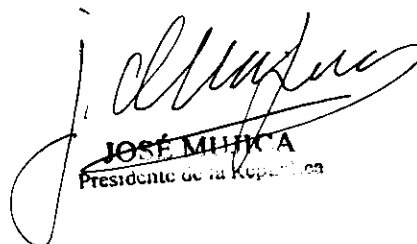 JOSÉ MUJICA
Presidente de la República